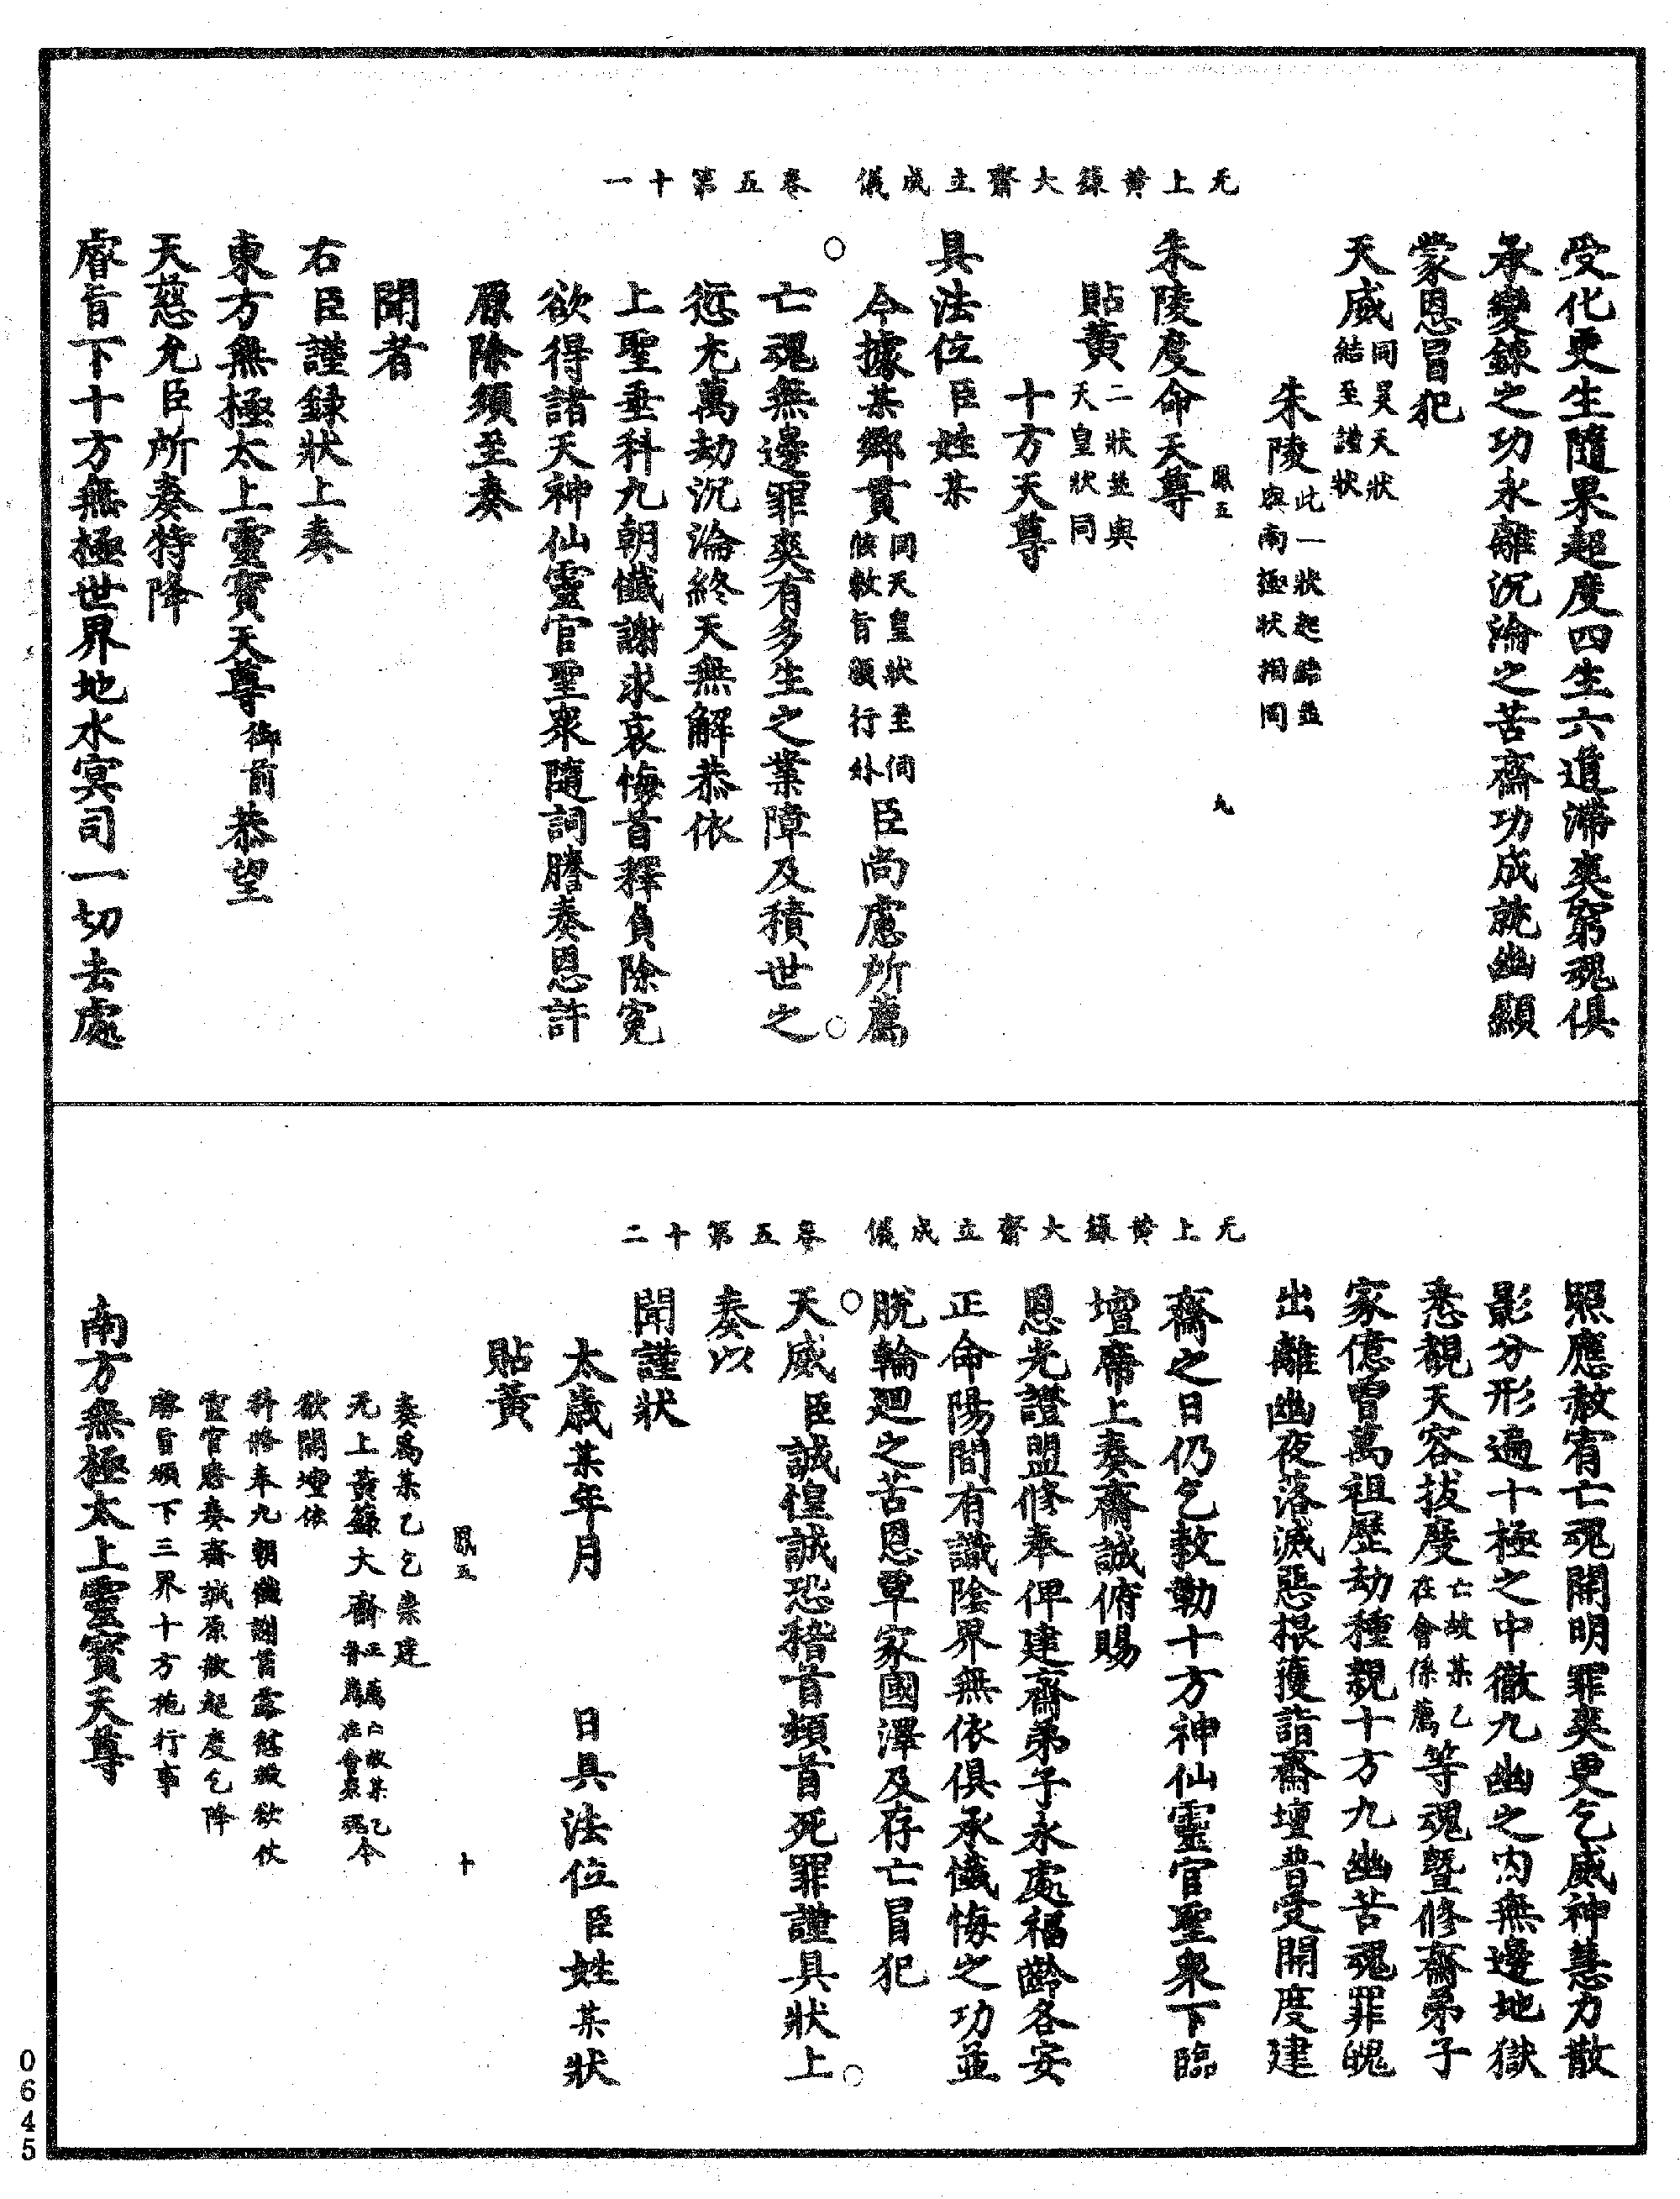 无上黃籙大齋立成儀　卷五第十一
受化更生隨果超度四生六道滯爽窮魂俱
承變鍊之功永離沉淪之苦齋功成就幽顯
蒙恩冒犯
天威同昊天狀結至謹狀
朱陵此一狀起結並與南極狀相同
鳳五　九
朱陵度命天尊
貼黃二狀並與天皇狀同
十方天尊
具法位臣姓某
今據某鄉貫同天皇狀至伺候敕旨頒行外臣尚慮所薦
亡魂無邊罪爽有多生之業障及積世之
愆尤萬劫沉淪終天無解恭依
上聖垂科九朝懺謝求哀悔首釋負除冤
欲得諸天神仙靈官聖眾隨詞謄奏恩許
原除須至奏
聞者
右臣謹錄狀上奏
東方無極太上靈寶天尊御前恭望
天慈允臣所奏特降
睿旨下十方無極世界地水冥司一切去處
无上黃籙大齋立成儀　卷五第十二
照應赦宥亡魂開明罪爽更乞威神慧力散
影分形遍十極之中徹九幽之內無邊地獄
悉覩天容拔度亡故某乙在會係薦等魂暨修齋弟子
家億曾萬祖歷劫種親十方九幽苦魂罪魄
出離幽夜落滅惡根獲詣齋壇普受開度建
齋之日仍乞敕勒十方神仙靈官聖眾下臨
壇席上奏齋誠俯賜
恩光證盟修奉俾建齋弟子永處福齡各安
正命陽間有識陰界無依俱承懺悔之功並
脫輪迴之苦恩覃家國澤及存亡冒犯
天威臣誠惶誠恐稽首頓首死罪謹具狀上
奏以
聞謹狀
太歲某年月　日具法位臣姓某狀
貼黃
鳳五　十
奏為某乙乞崇建
无上黃籙大齋正薦亡故某乙普薦在會眾魂今
欲開壇依
科將奉九朝懺謝首露愆瑕欲仗
靈官賫奏齋誠原赦起度乞降
睿旨頒下三界十方施行事
南方無極太上靈寶天尊
0645